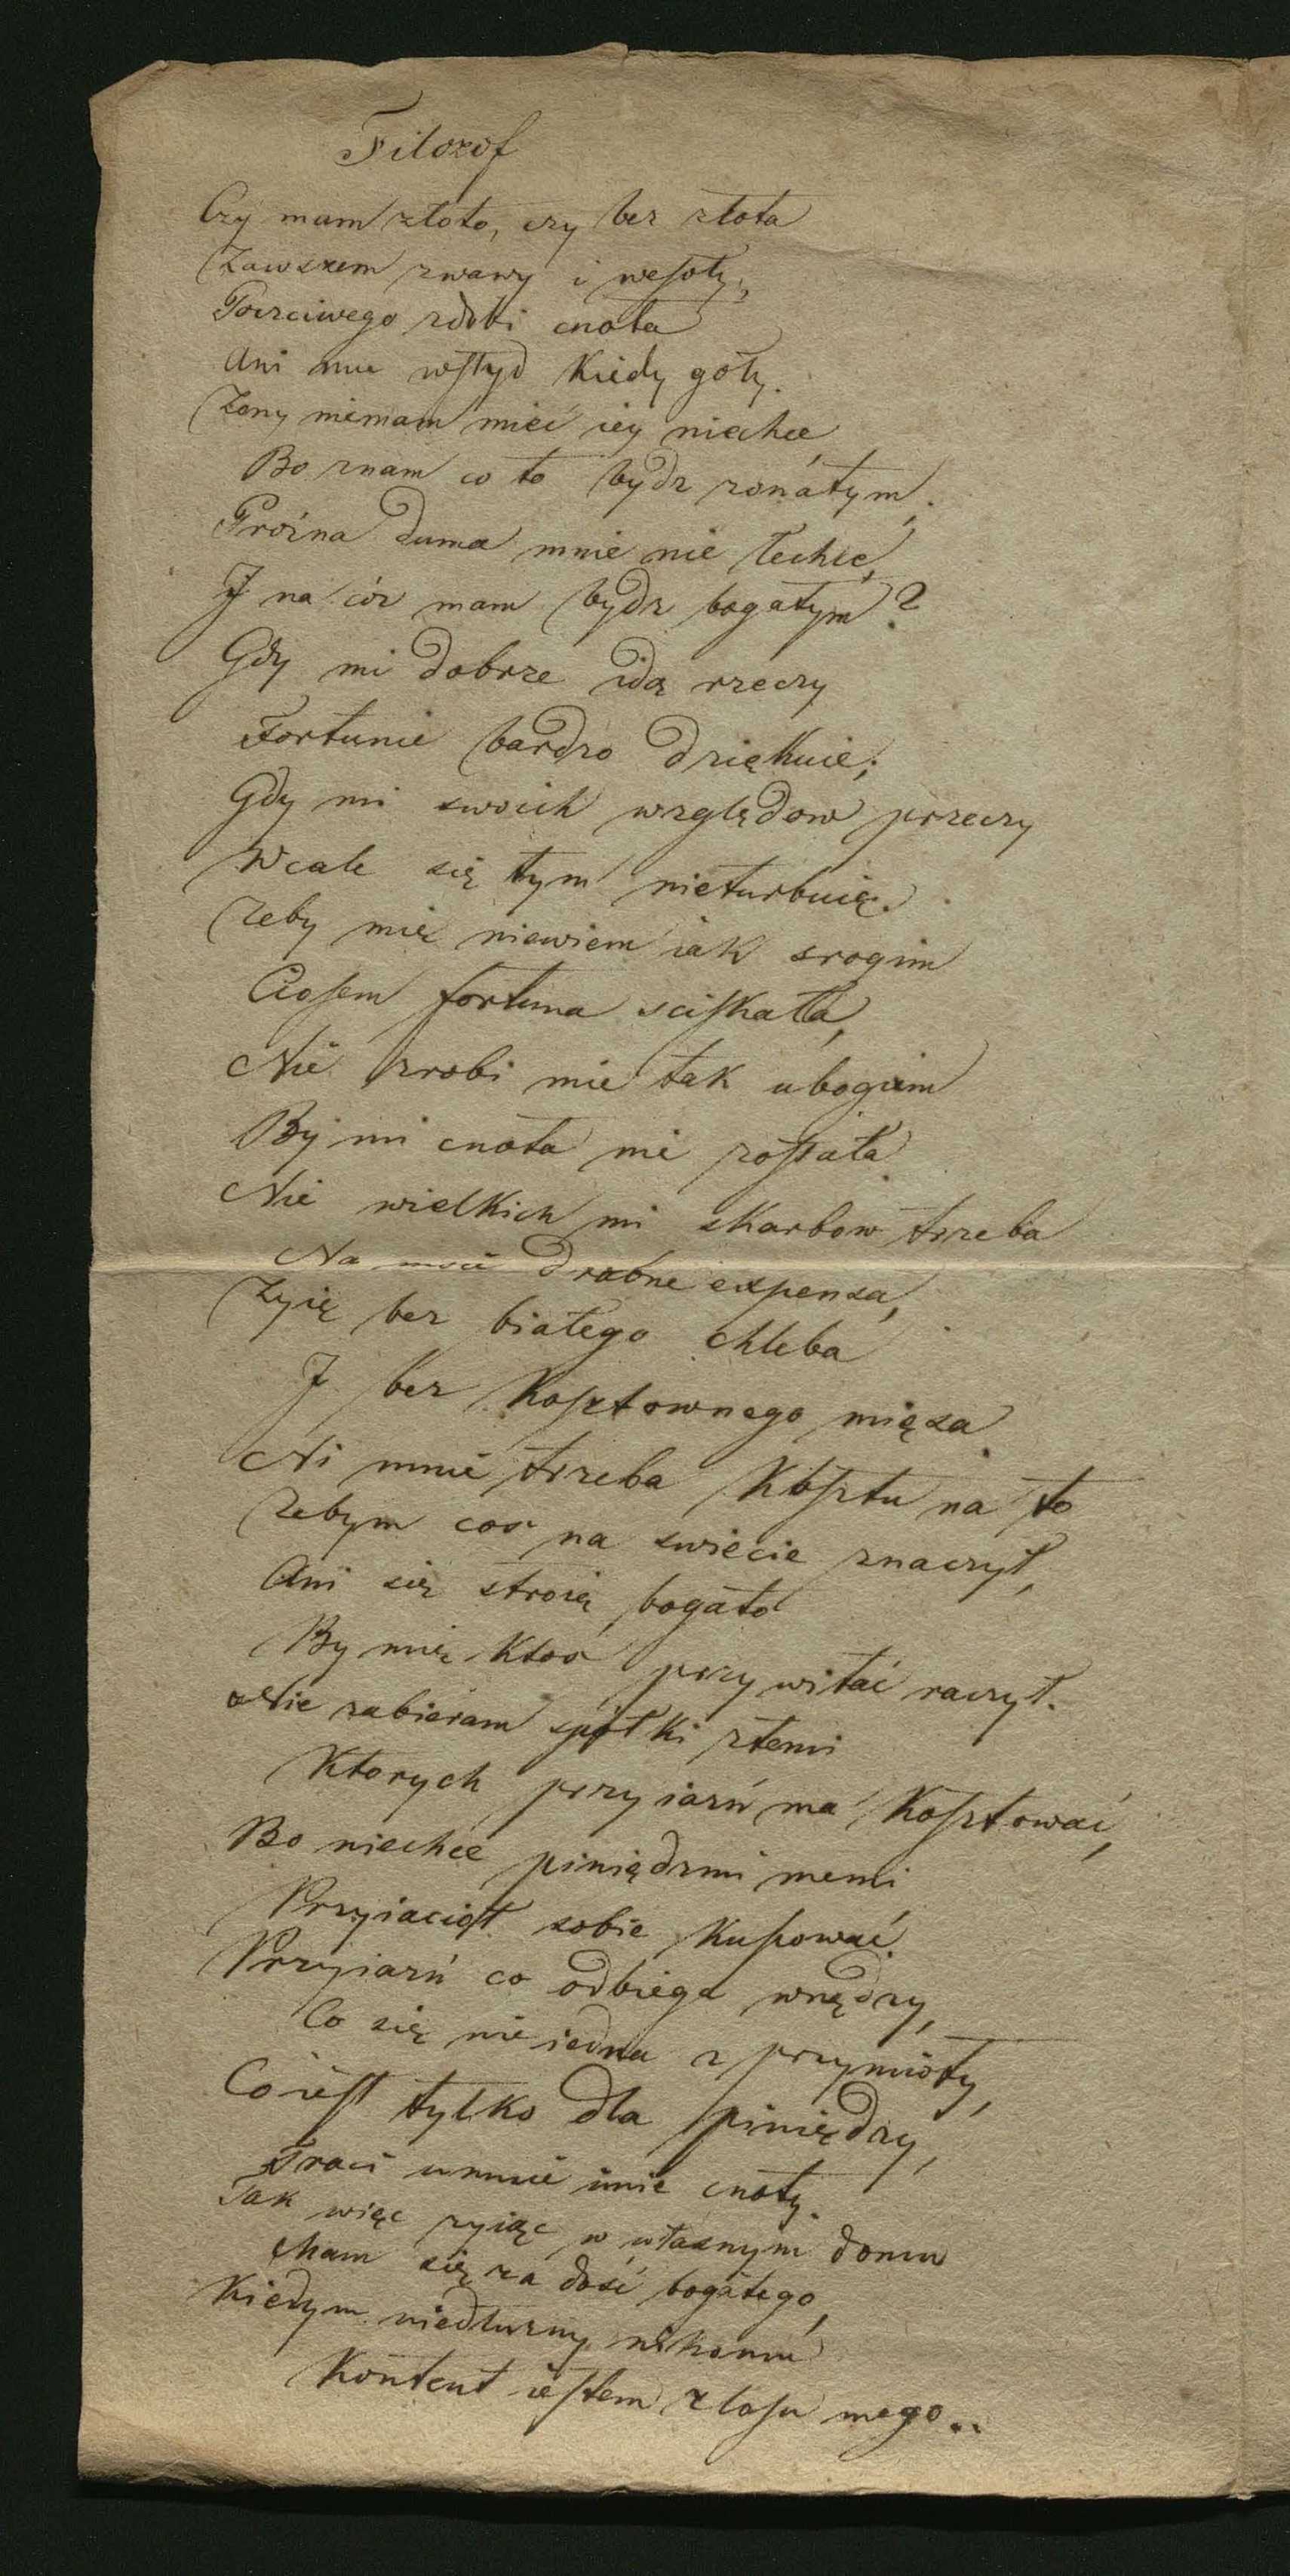 Filozof
Czy mam złoto, czy bez złota
Zawszem zwawy i wesoły,
Poczciwego zdobi cnota
Ani mu wstyd kiedy goły.
Zony niemam mieć iey niechcę
Bo znam co to bydz zonátym,
Proźna duma mnie nie łechce,
I na cóz mam bydz bogatym?
Gdy mi dobrze idą rzeczy
Fortunie bardzo dziękuie;
Gdy mi swoich względow przeczy
Wcale się tym nieturbuię.
zeby mię niewiem iak srogim
Ciosem fortuna sciskała,
Nie zrobi mie tak ubogim
By mi cnota nie zostáła.
Nie wielkich mi skarbow trzeba
Na moie drobne expensa,
Zyię bez białego chleba
I bez kosztownego mięsa.
Ni mnie trzeba kosztu na to
zebym cos na swiecie znaczył,
Ani się stroię bogato
By mię ktos przywitać raczył.
Nie zabieram spółki ztemi
Ktorych przyiazń ma kosztować,
Bo niechce piniędzmi memi
Przyiaciół sobie kupować.
Przyiazń co odbiega wnędzy,
Co się nie iedna z przymioty,
Co iest tylko dla piniędzy,
Traci umnie imie cnoty.
Tak więc zyiąc w własnym domu
Mam się za dość bogatego,
Kiedym niedłuzny nikomu
Kontent iestem z losu mego..